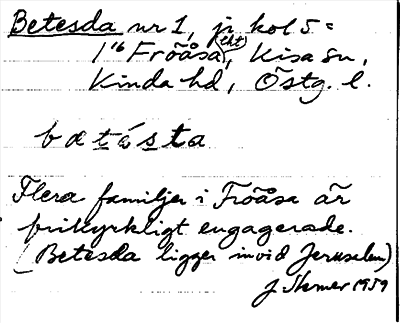 Betesda nr 1, jr kol 5 =
1/16 Fröåsa (lht), Kisa sn,
Kinda hd, Östg. l.
bætésta
Flera familjer i Fröåsa är
frikyrkligt engagerade.
(Betesda ligger invid Jerusalem)
1959